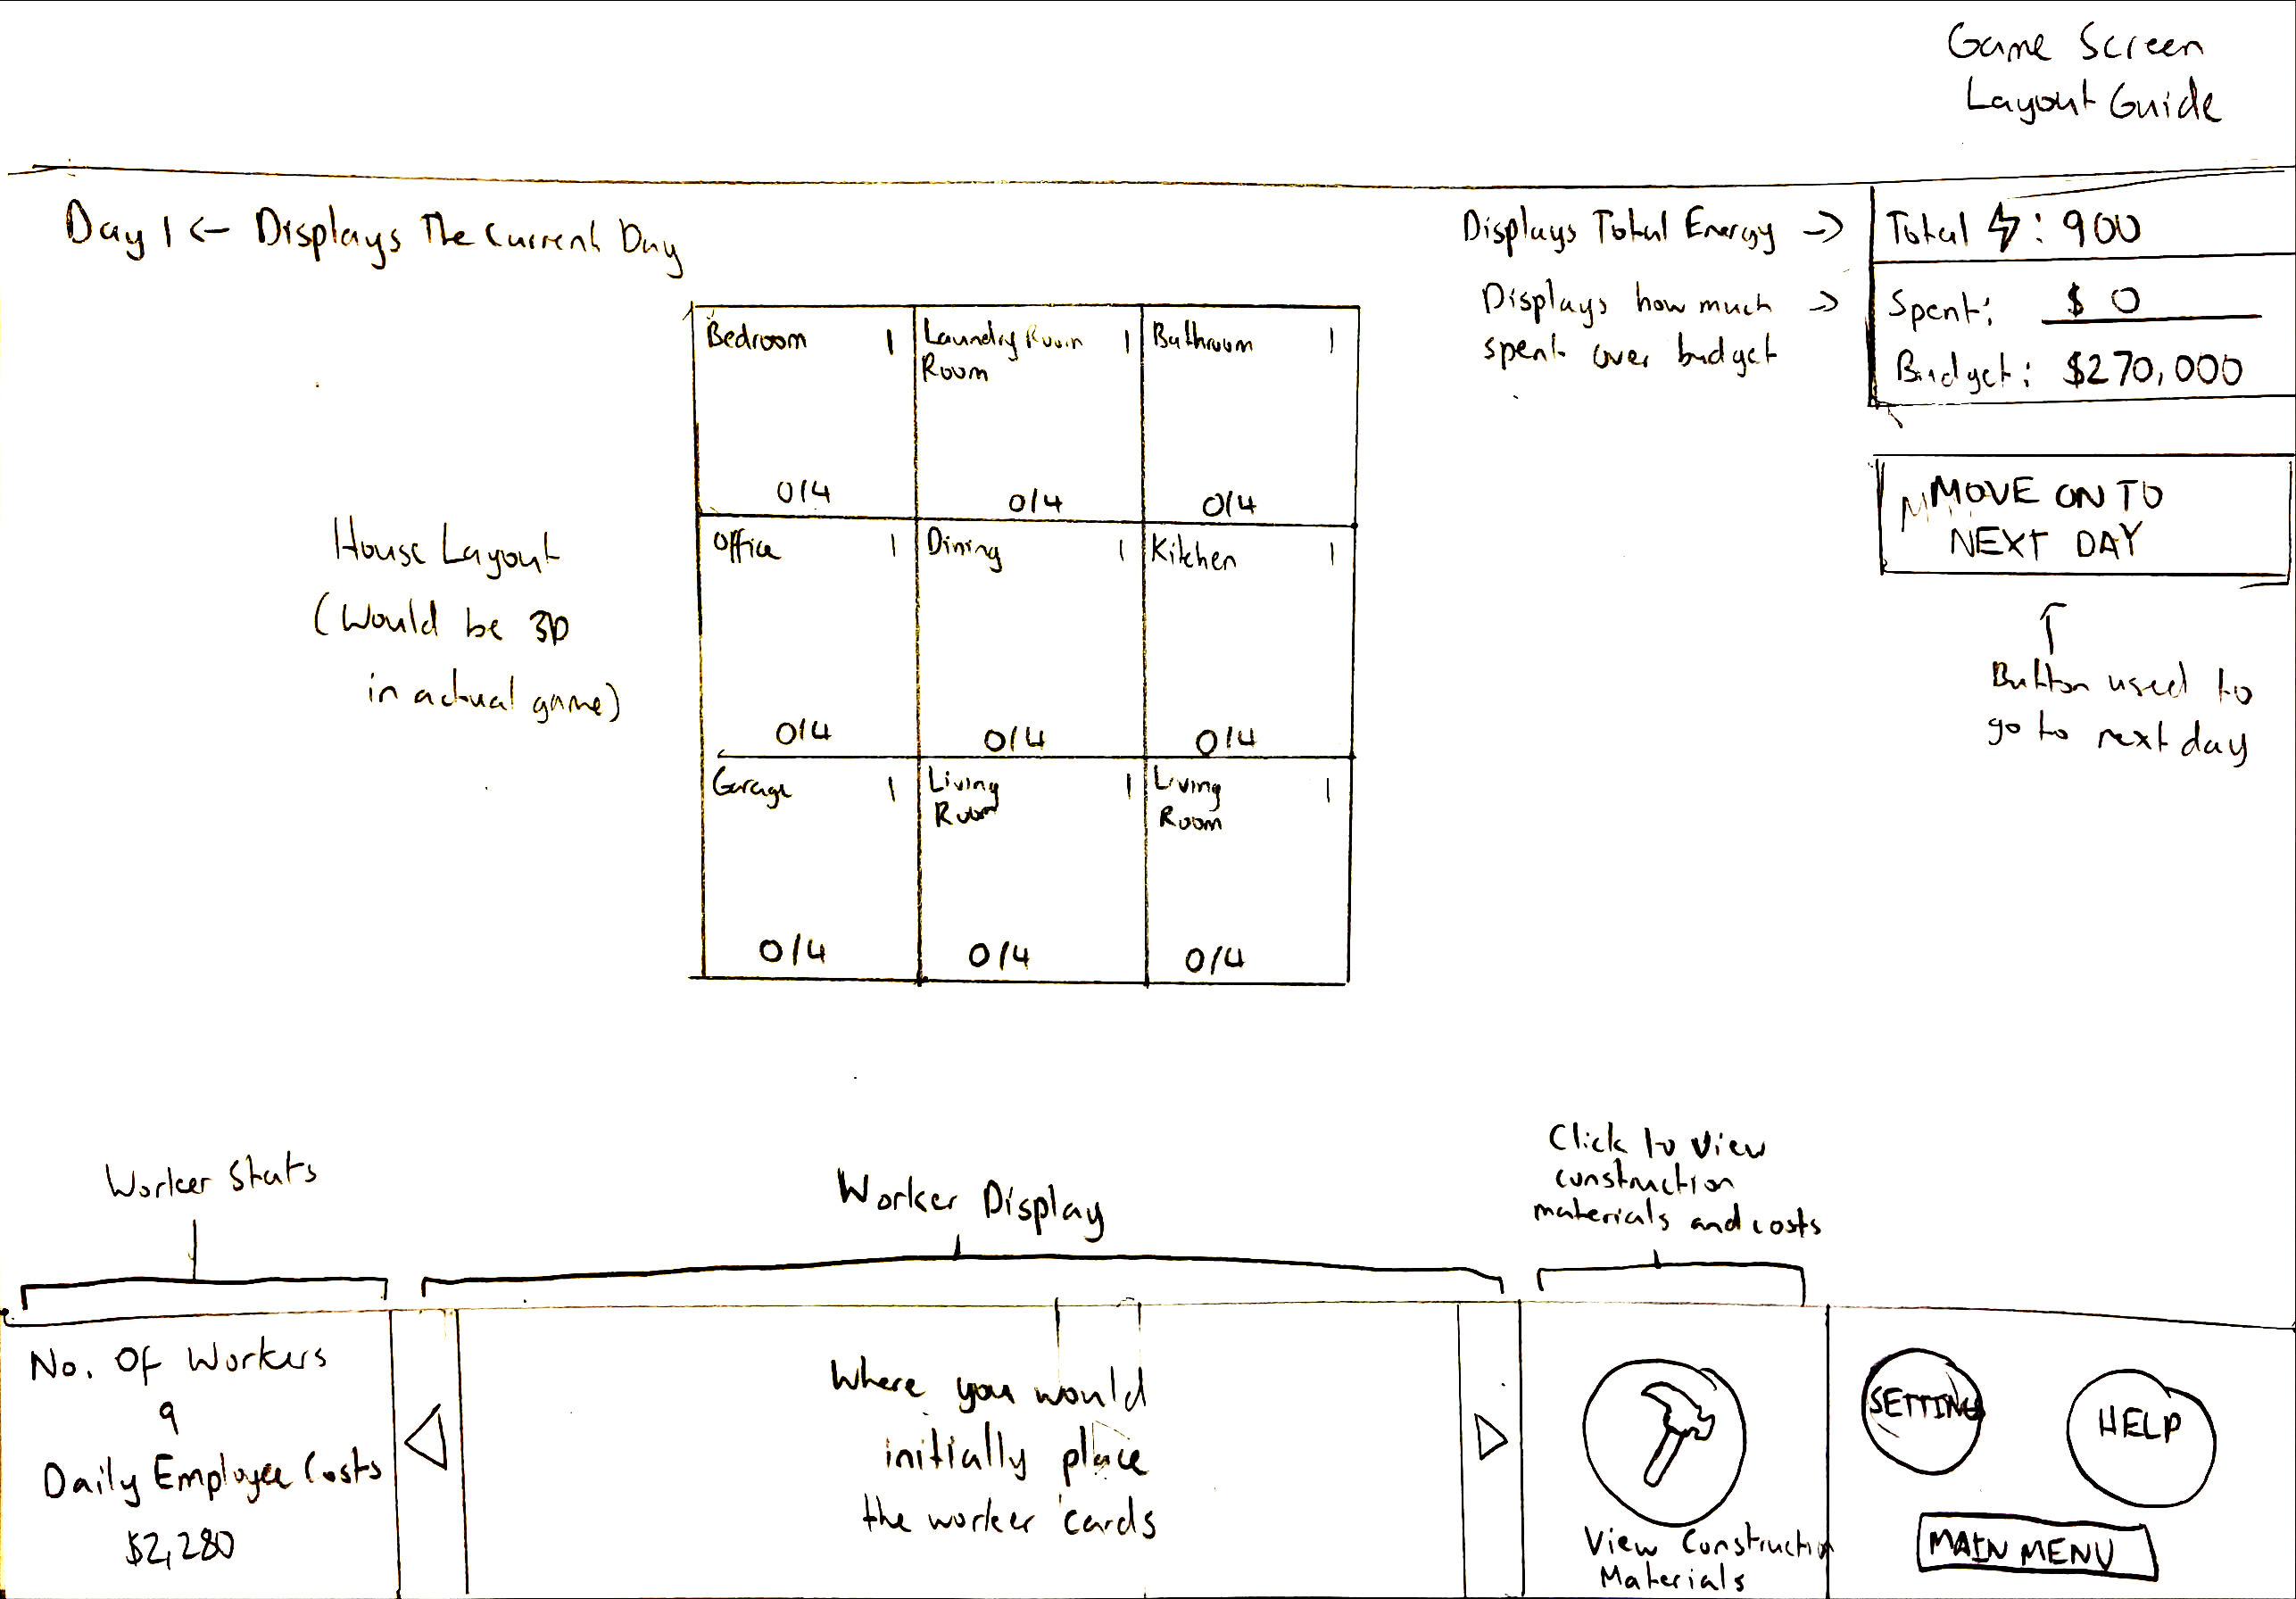 Game Screen
Layout Guide
Day 1 <- Displays The Current Day
Displays Total Energy ->
Total ⚡: 900
Displays how much ->
spent over budget
Spent: $ 0
Budget: $270,000
MOVE ON TO
NEXT DAY
Button used to
go to next day
House Layout
(Would be 3D
in actual game)
Bedroom 1
0/4
Laundry Room 1
Room
0/4
Bathroom 1
0/4
Office 1
0/4
Dining 1
0/4
Kitchen 1
0/4
Garage 1
0/4
Living 1
Room
0/4
Living 1
Room
0/4
Worker Stats
Worker Display
Click to view
construction
materials and costs
No. Of Workers
9
Daily Employee Costs
$2,280
Where you would
initially place
the worker cards
View Construction
Materials
SETTING
HELP
MAIN MENU